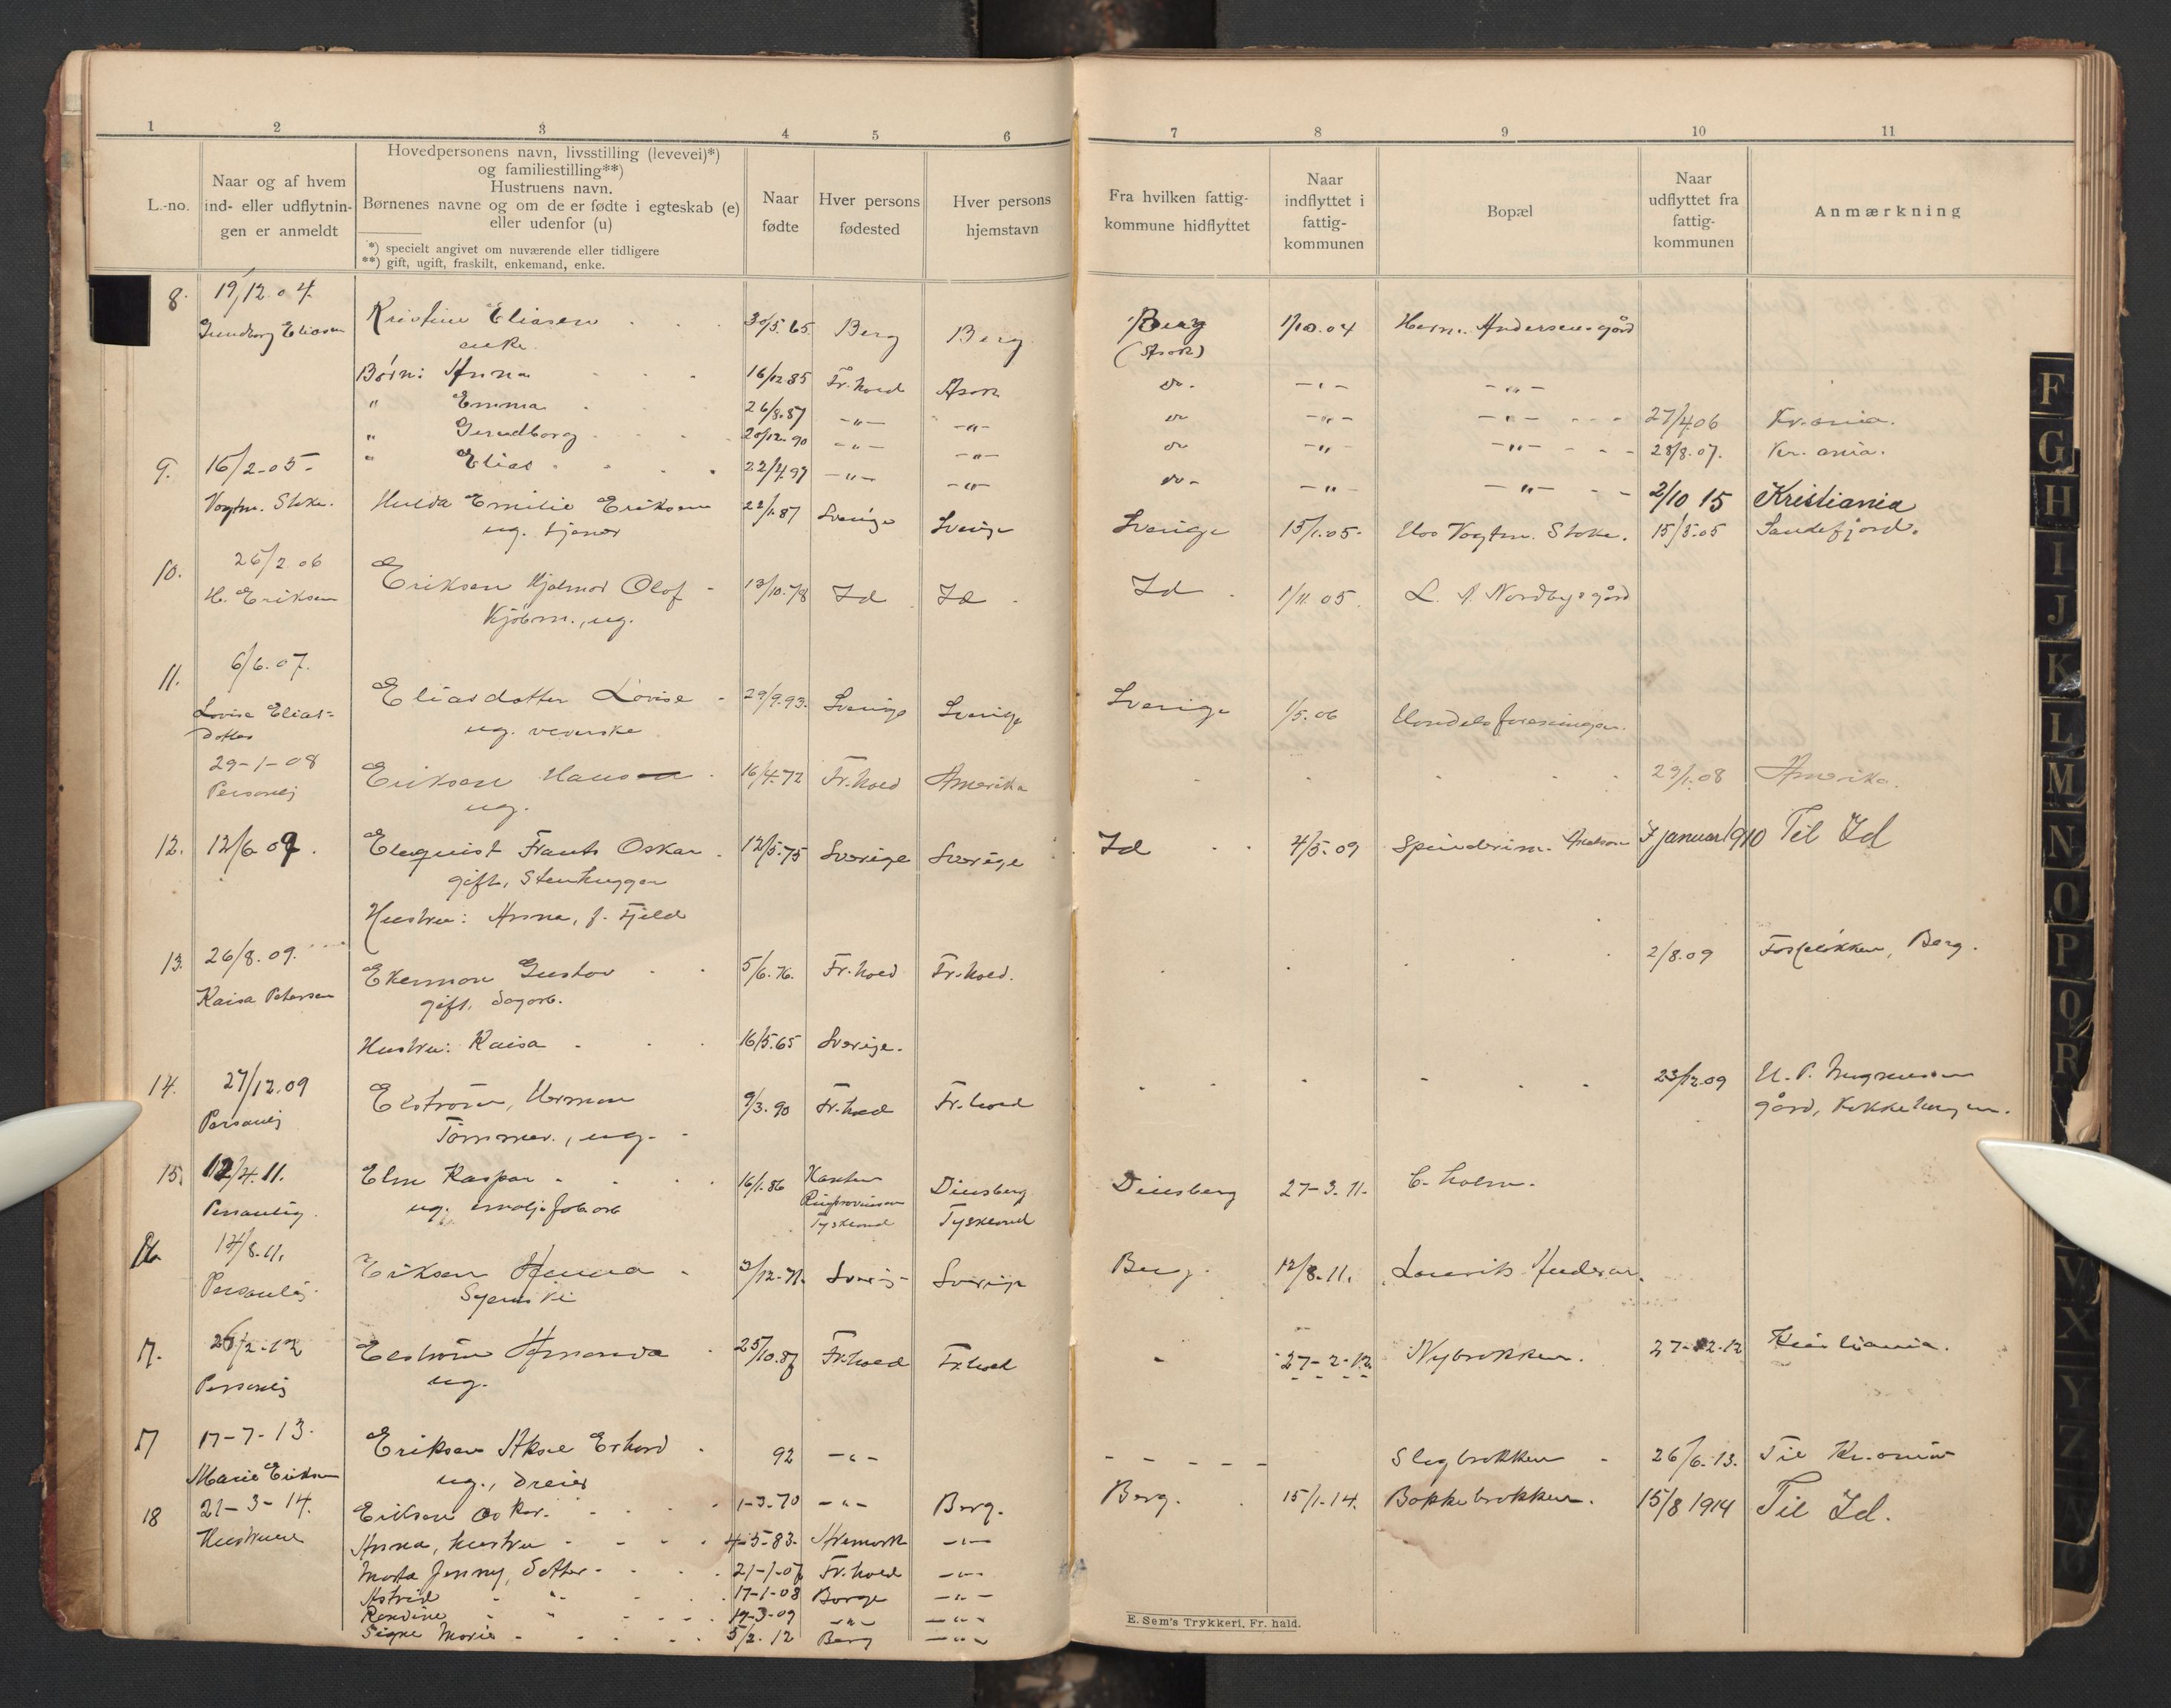 1 2 3 4 5 6 7 8 9 10 11
L.-no.
Naar og af hvem
ind- eller udflytnin-
gen er anmeldt
Hovedpersonens navn, livsstilling (levevei)*)
og familiestilling**)
Hustruens navn.
Børnenes navne og om de er fødte i egteskab (e)
eller udenfor (u)
*) specielt angivet om nuværende eller tidligere
**) gift, ugift, fraskilt, enkemand, enke.
Naar
fødte
Hver persons
fødested
Hver persons
hjemstavn
Fra hvilken fattig-
kommune hidflyttet
Naar
indflyttet i
fattig-
kommunen
Bopæl
Naar
udflyttet fra
fattig-
kommunen
Anmærkning
8. 19/12.04. Kristine Eliasen 30/5.65 Berg Berg Berg 1/10.04 Herm. Andersens gård
Gundborg Eliasen enke. (Asak)
Børn: Anna 16/12.85 Fr.hald Asak do. -"- -"-
" Emma 26/8.87 -"- -"- do -"- -"- 27/4.06 Kr.ania.
" Gundborg 20/12.90 -"- -"- do -"- -"- 28/8.07. Kr.ania.
" Elias 22/4.97 -"- -"- do- -"- -"- 2/10 15 Kristiania
9. 16/2-05- Hulda Emilie Eriksen 22/1.87 Sverige Sverige Sverige 15/1.05. Hos Vogtm. Stoke. 15/5.05 Sandefjord.
Vogtm. Stoke. ug. tjener
10. 26/2.06 Eriksen Hjalmar Olof 13/10.78 Id Id Id 1/11.05. L. A. Nordbys gård
H. Eriksen Kjøbm., ug.
11. 6/6.07. Eliasdotter Lovise 29/9.93. Sverige Sverige Sverige 1/5.06 Handelsforeningen.
Lovise Elias=
dotter ug. veverske
29-1-08 Eriksen Hans 16/4.72 Fr.hald Amerika 29/1.08 Amerika.
Personlig ug.
12. 12/6.09. Elmquist Frants Oskar 12/5.75 Sverige Sverige Id 4/5.09 7 januar 1910 Til Id
gift, Stenhugger
Hustru: Anna, f. Fjeld
13. 26/8.09. Ekerman Gustav 5/6.76. Fr.hald Fr.hald. 2/8.09 Fosseløkken, Berg.
Kaisa Petersen gift, Sagarb.
Hustru: Kaisa 16/5.65 Sverige.
14. 27/12.09 Ekström, Herman 9/3.90 Fr.hald Fr.hald 23/12.09 H. P. Magnussen
Personlig Tømmer., ug. gård,
15. 12/4.11. Elm Kaspar 16/1.86 Duisberg Duisberg 27-3.11. C. Holm.
Personlig. ug. Rhinprovinsen
Tyskland Tyskland
16. 14/8.11. Eriksen Anna 3/12.71. Sverig- Sverige Berg. 12/8.11. Laurits Andersen.
Personlig. Syerske
17. 26/2-12 Ekström Amanda 25/10.87 Fr.hald Fr.hald 27-2-12 Nybrokken. 27-12.12 Kristiania.
Personlig ug.
17 17-7-13. Eriksen Aksel Erhard 92 -"- Slagbrokken 26/6.13. Til Kr.ania
Marie Eriksen ug., dreier
18 21-3-14. Eriksen Oskar. 1-3.70 -"- Berg. Berg. 15/1-14. Bakkebrokken. 15/8 1914 Til Id.
Hustruen Anna, hustru 4-5-83. Aremark -"-
Marta Jenny, datter 21-1-07 Fr.hald -"-
Astrid " 17-1-08 Borge -"-
Randine " 19-3-09 -"- -"-
Signe Marie 5/2.12 Berg -"-
F
G
H
I
J
K
L
M
N
O
P
Q
R
V
X
Y
Z
E. Sem's Trykkeri, Fr. hald.